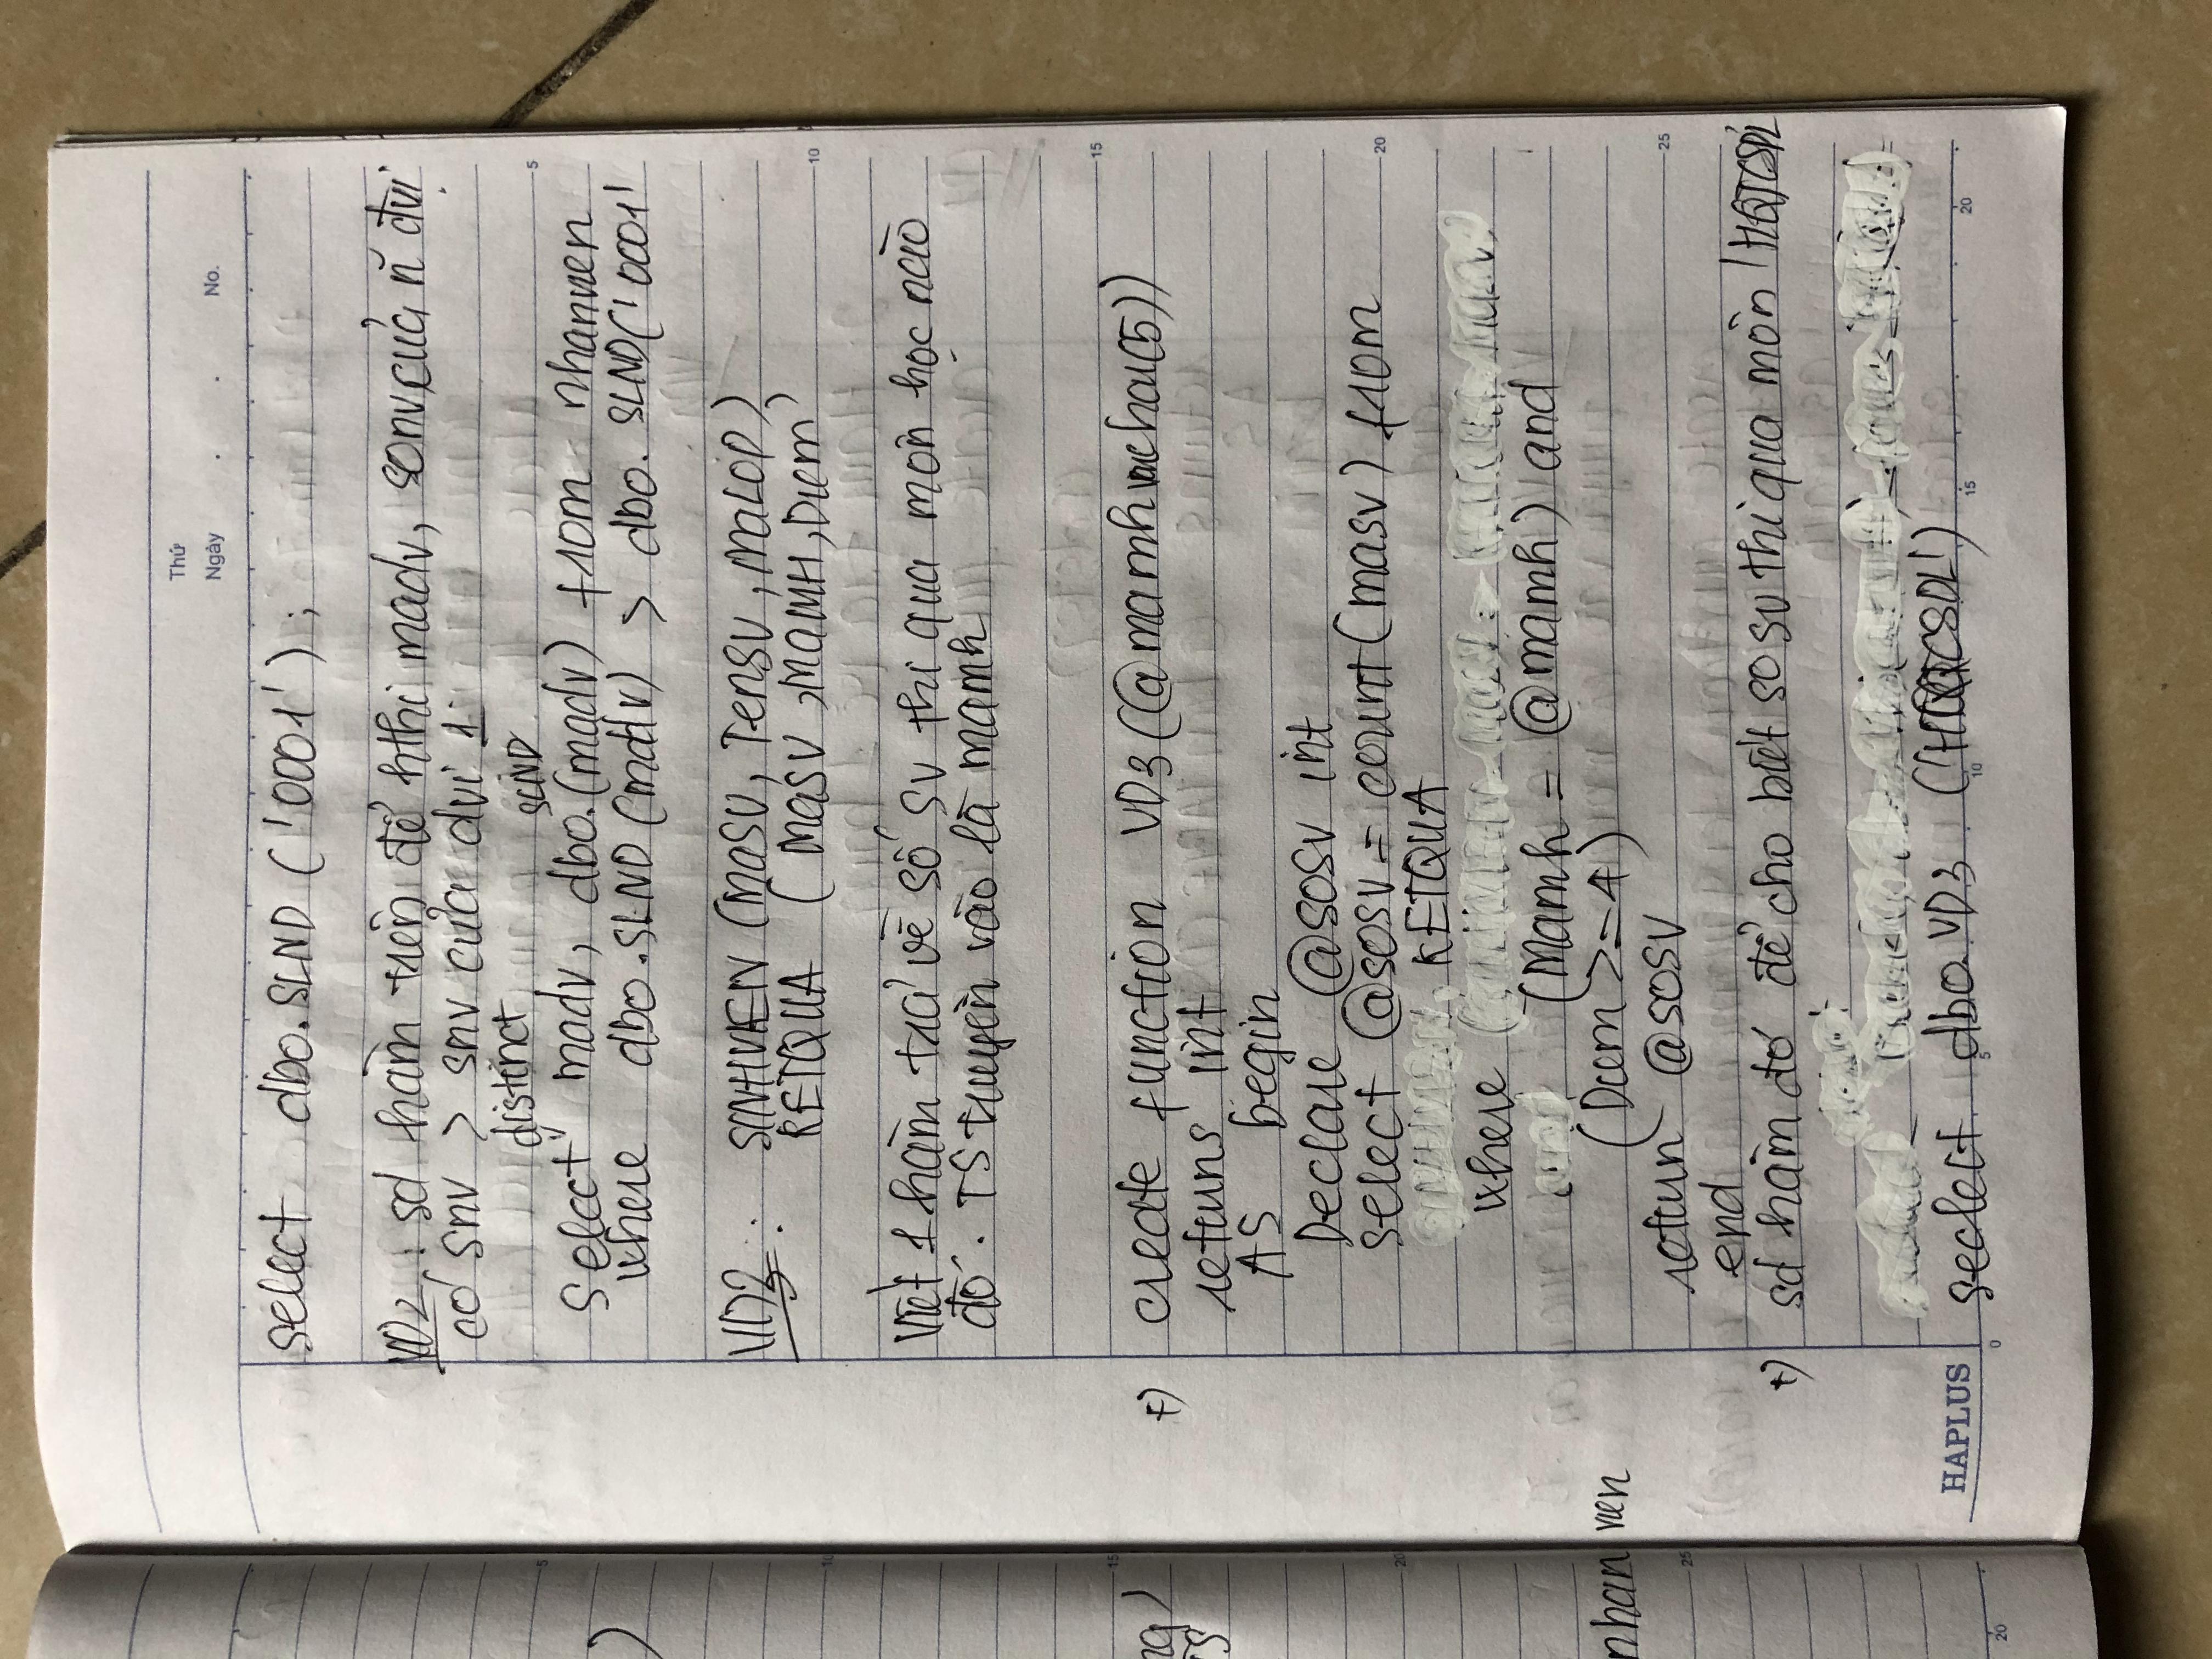 Thứ
Ngày . . No.
select dbo.SLND ('0001');
VD2 : sd hàm trên để hthi madv, sonv của n̆ đvi
có snv > snv của dvi 1
distinct SLND
Select madv, dbo.(madv) from nhanvien
where dbo.SLND (madv) > dbo. SLND('0001'
VD3 : SINHVIEN (MaSV, TenSV, MaLOP)
KETQUA (MaSV, MAMH, Diem)
Viết 1 hàm trả về số sv thi qua môn học nào
đó. TS truyền vào là mamh
+) create function VD3 (@mamh varchar(5))
returns int
AS begin
Declare @SOSV int
select @SOSV = count(masv) from
KETQUA
where
(Mamh = @mamh) and
(Diem >= 4)
return @SOSV
end
+) sd hàm đó để cho biết so sv thi qua môn 'HQTCSDL
seclect dbo.VD3 ('HQTCSDL')
ng)
TS
nhan vien
HAPLUS
5
10
15
20
25
0 5 10 15 20
5
10
15
20
25
20